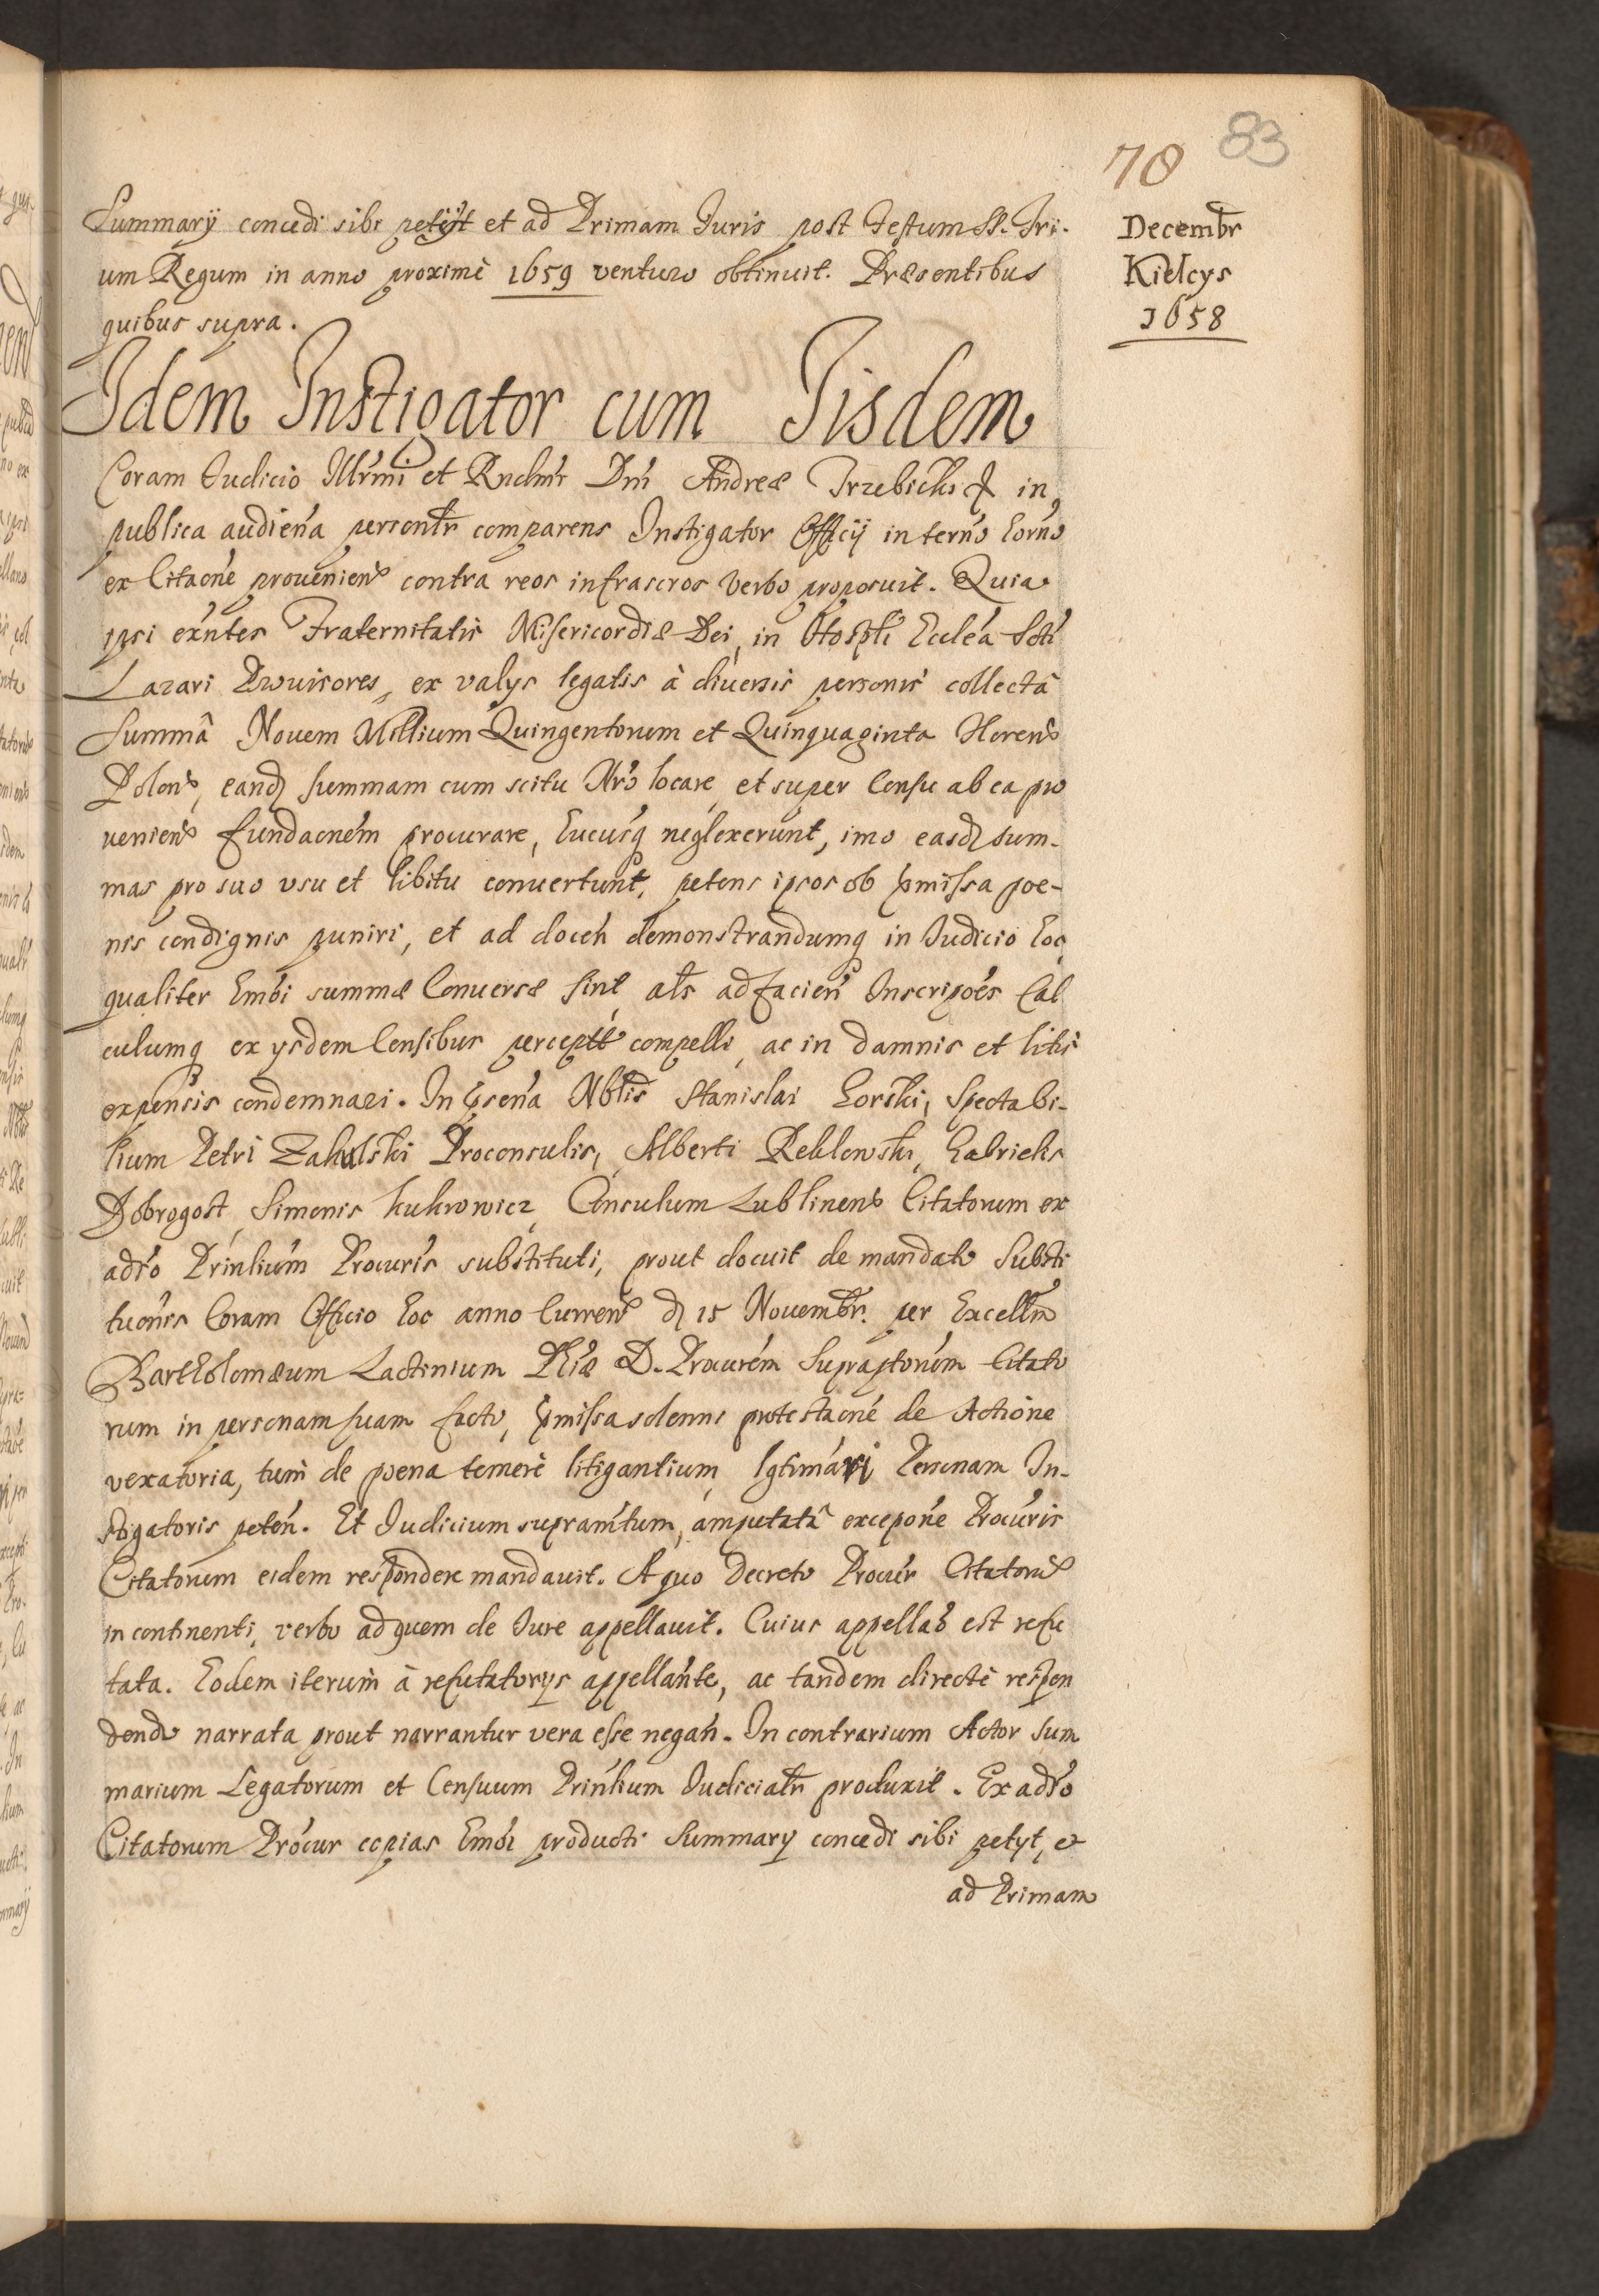 78 83
Decembr
Kielcys
1658
Summarÿ concedi sibi petÿt et ad Primam Iuris post Festum SS. Tri-
um Regum in anno proximè 1659 venturo obtinuit. Præsentibus
quibus supra.
Idem Instigator cum Iisdem
Coram Iudicio Illrmi et Rndmi Dni Andreæ Trzebicki & in
publica audiena personlr comparens Instigator Officij in terno horno
ex Citaone prouenien contra reos infrascros verbo proposuit. Quia
ipsi exntes Fraternitatis Misericordiæ Dei, in Hospli Ecclea Scti
Lazari Prouisores, ex valys legatis à diuersis personis collectâ
Summâ Nouem Millium Quingentorum et Quinquaginta Floren
Polon, eand summam cum scitu Nro locare, et super Censu ab ea pro
uenien fundaonem procurare, hucusq neglexerunt, imo easd sum-
mas pro suo vsu et libitu conuertunt, petens ipsos ob pmissa poe-
nis condignis puniri, et ad docen demonstrandumq in Iudicio hoc
qualiter hmoi summæ Conuersæ sint als ad facien Inscripoes Cal
culumq ex ysdem Censibus percept compelli, ac in damnis et litis
expensis condemnari. In psena Nblis Stanislai Gorski, Spectabi-
lium Petri Zakulski Proconsulis, Alberti Reklowski, Gabrielis
Dobrogost, Simonis kukrowicz, Consulum Lublinen Citatorum ex
adro Prinlium Procuris substituti, prout docuit de mandato Substi
tuonis Coram Officio hoc anno Curren d 15 Nouembr. per Excellm
Bartholomæum Lactinium Phiæ D. Procurem Supraptorum Citato
rum in personam suam facto, pmissa solenni protestaone de Actione
vexatoria, tum de poena temerè litigantium, lgtimari Personam In-
stigatoris peten. Et Iudicium supramtum, amputatâ excepone Procuris
Citatorum eidem respondere mandauit. A quo Decreto Procur Citatoru
in continenti, verbo ad quem de Iure appellauit. Cuius appellao est refu
tata. Eodem iterum à refutatorys appellante, ac tandem directè respon
dendo narrata prout narrantur vera esse negan. In contrarium Actor Sum
marium Legatorum et Censuum Prinlium Iudicialr produxit. Ex adro
Citatorum Procur copias hmoi producti Summary concedi sibi petyt, et
ad Primam